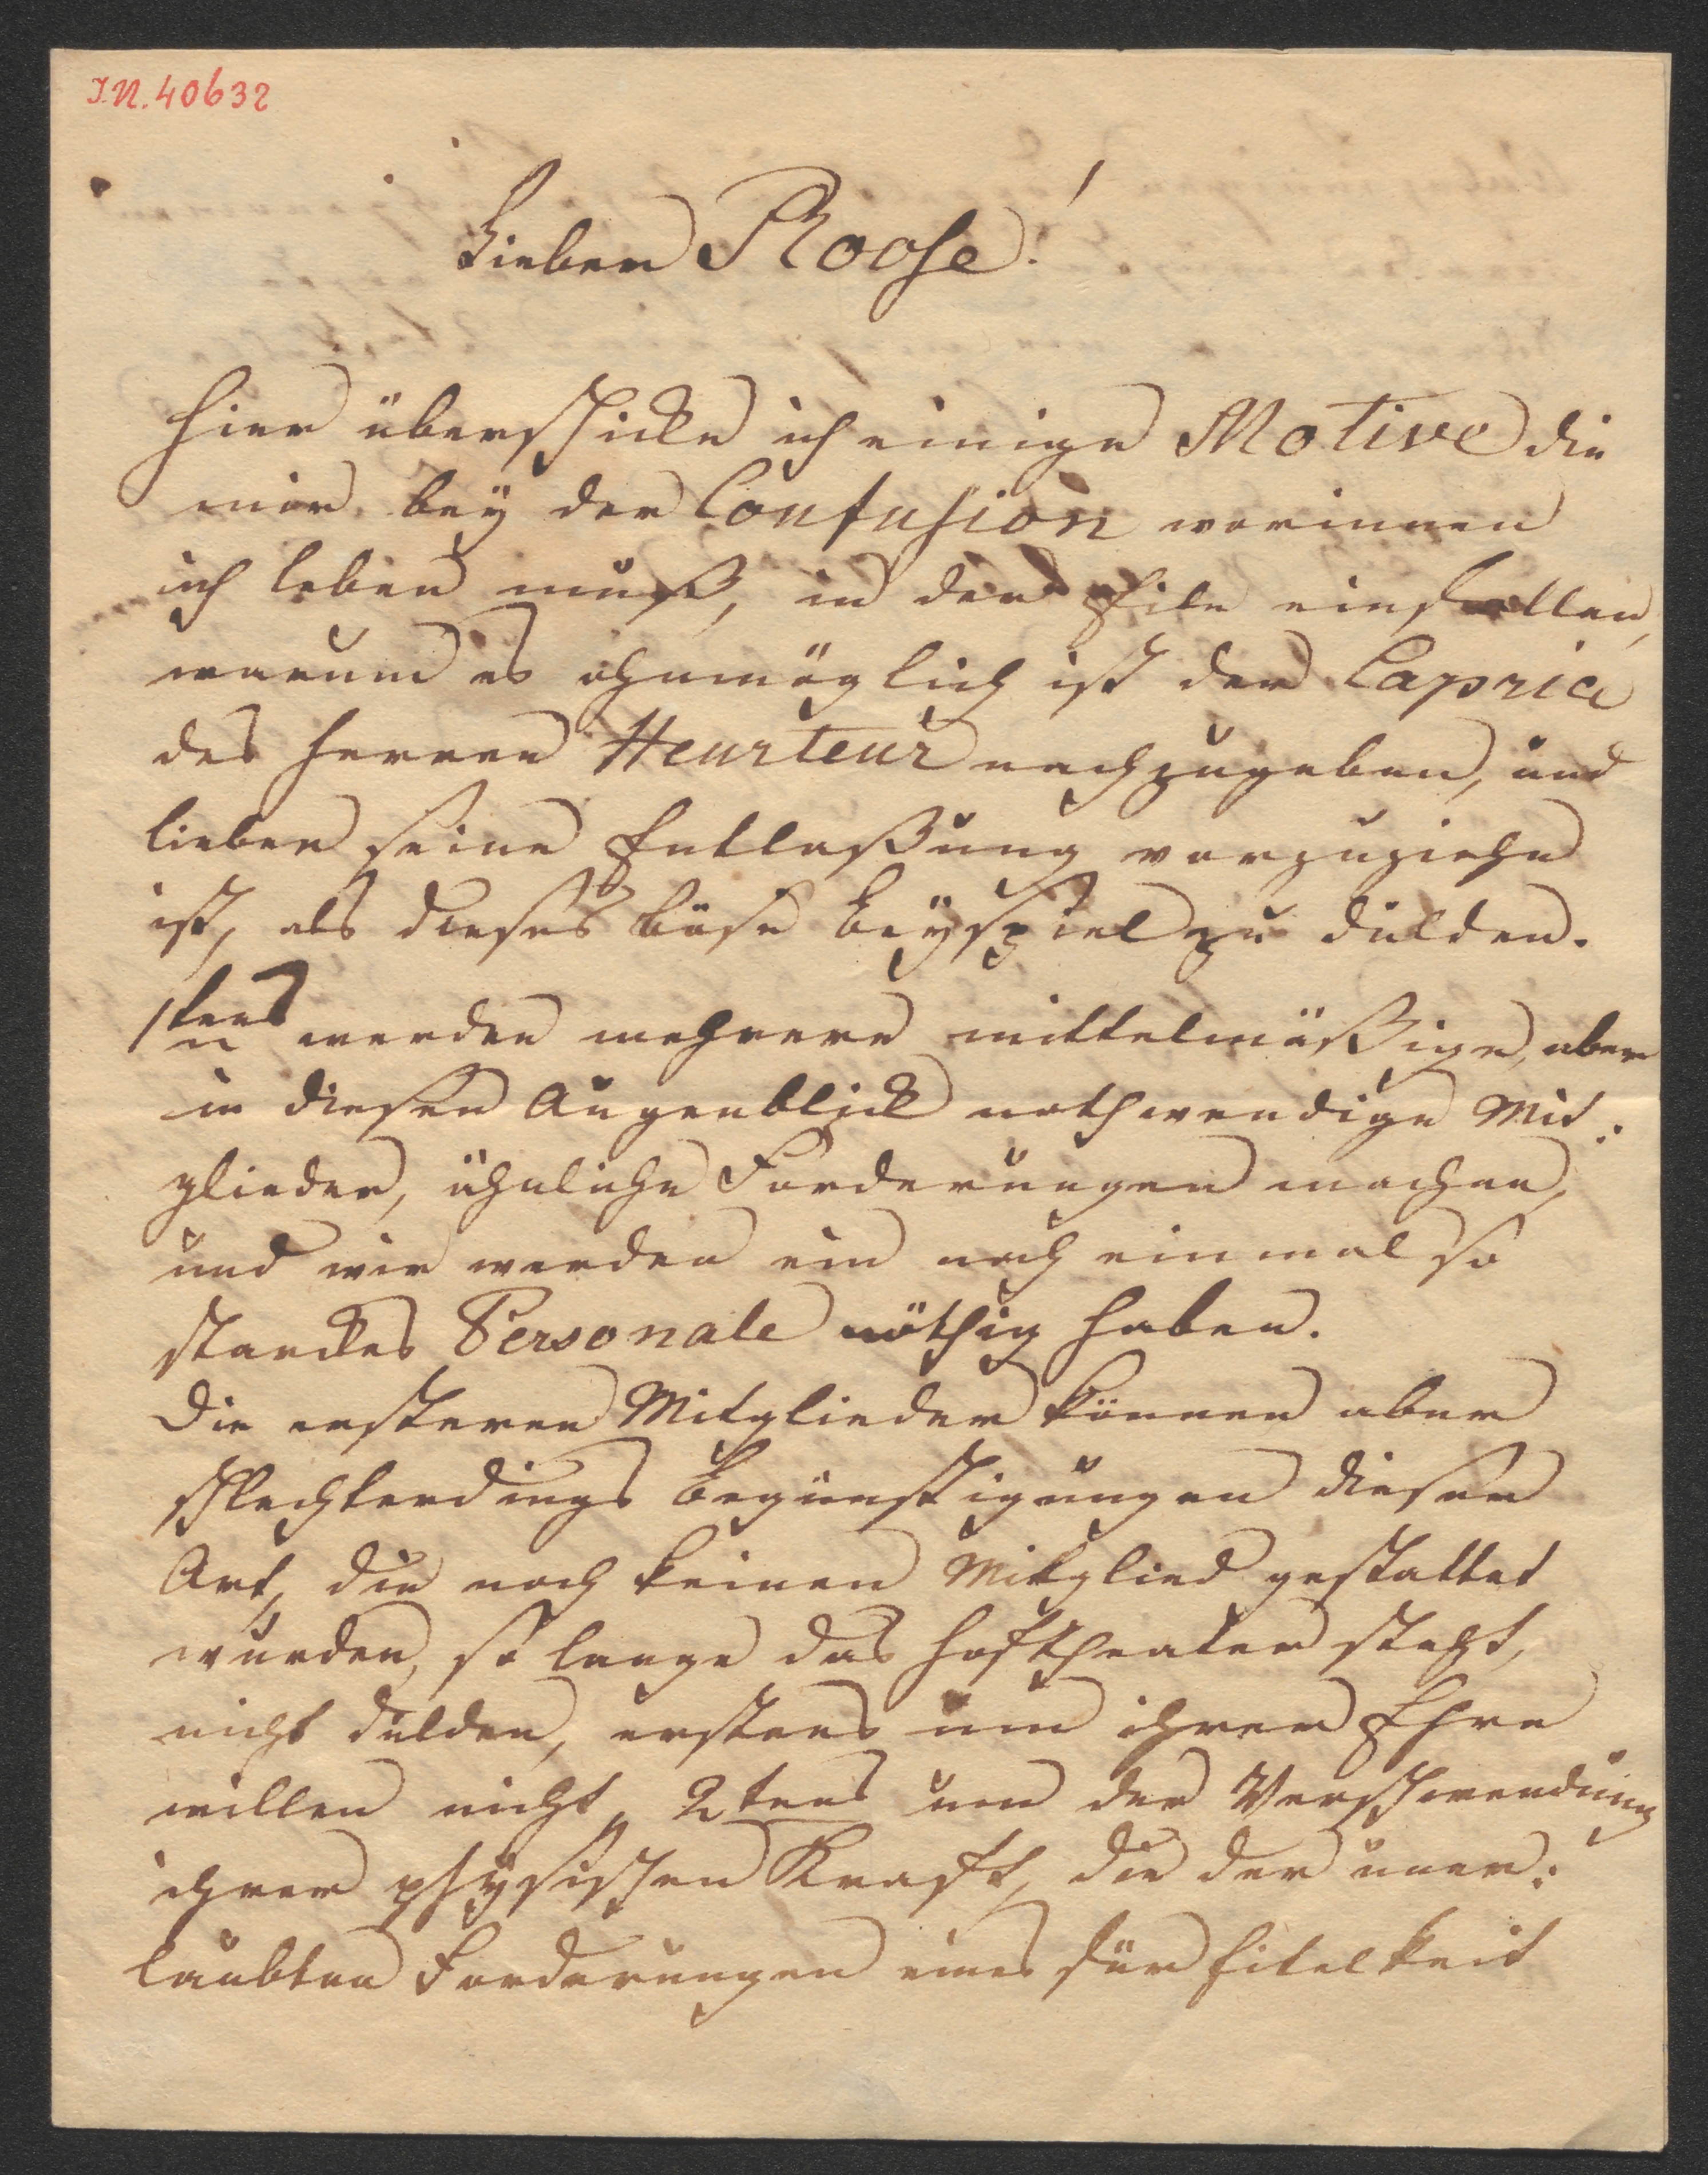 I.N. 40632
Lieber Roose!
Hier überschicke ich einige Motive die
mir bey der Confusion worinnen
ich leben muß, in der Eile einfallen,
warum es ohnmöglich ist der Caprice
des Herren Heurteur nachzugeben, und
lieber seine Entlaßung vorzuziehn
ist, als dieses böse Beyspiel zu dulden.
1stens werden mehrere mittelmäßige, aber
in diesen Augenblick nothwendige Mit:
glieder, ähnliche Forderungen machen,
und wir werden ein noch einmal so
starckes Personale nöthig haben.
Die ersteren Mitglieder können aber
schlechterdings Begünstigungen dieser
Art, die noch keinen Mitglied gestattet
wurden, so lange das Hoftheater steht,
nicht dulden, erstens um ihrer Ehre
willen nicht, 2tens um der Verschwendung
ihrer physischen Kraft, die der uner:
laubten Forderungen eines für Eitelkeit